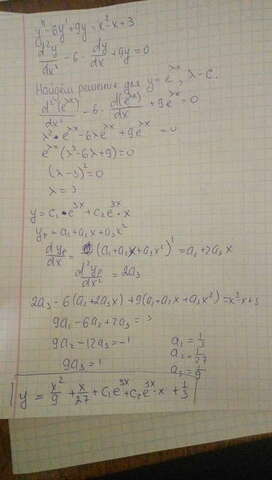 y'' - 6y' + 9y = x² - x + 3
d²y/dx² - 6 · dy/dx + 9y = 0
Найдем решение для y = e^λx, λ - C.
d²(e^λx)/dx² - 6 · d(e^λx)/dx + 9e^λx = 0
λ² · e^λx - 6λe^λx + 9e^λx = 0
e^λx (λ² - 6λ + 9) = 0
(λ - 3)² = 0
λ = 3
y = C₁ · e^3x + C₂e^3x · x
yₚ = a₁ + a₂x + a₃x²
dyₚ/dx = (a₁ + a₂x + a₃x²)' = a₂ + 2a₃x
d²yₚ/dx² = 2a₃
2a₃ - 6(a₂ + 2a₃x) + 9(a₁ + a₂x + a₃x²) = x² - x + 3
9a₁ - 6a₂ + 2a₃ = 3
9a₂ - 12a₃ = -1
9a₃ = 1
a₁ = 1/3
a₂ = 1/27
a₃ = 1/9
y = x²/9 + x/27 + C₁e^3x + C₂e^3x · x + 1/3